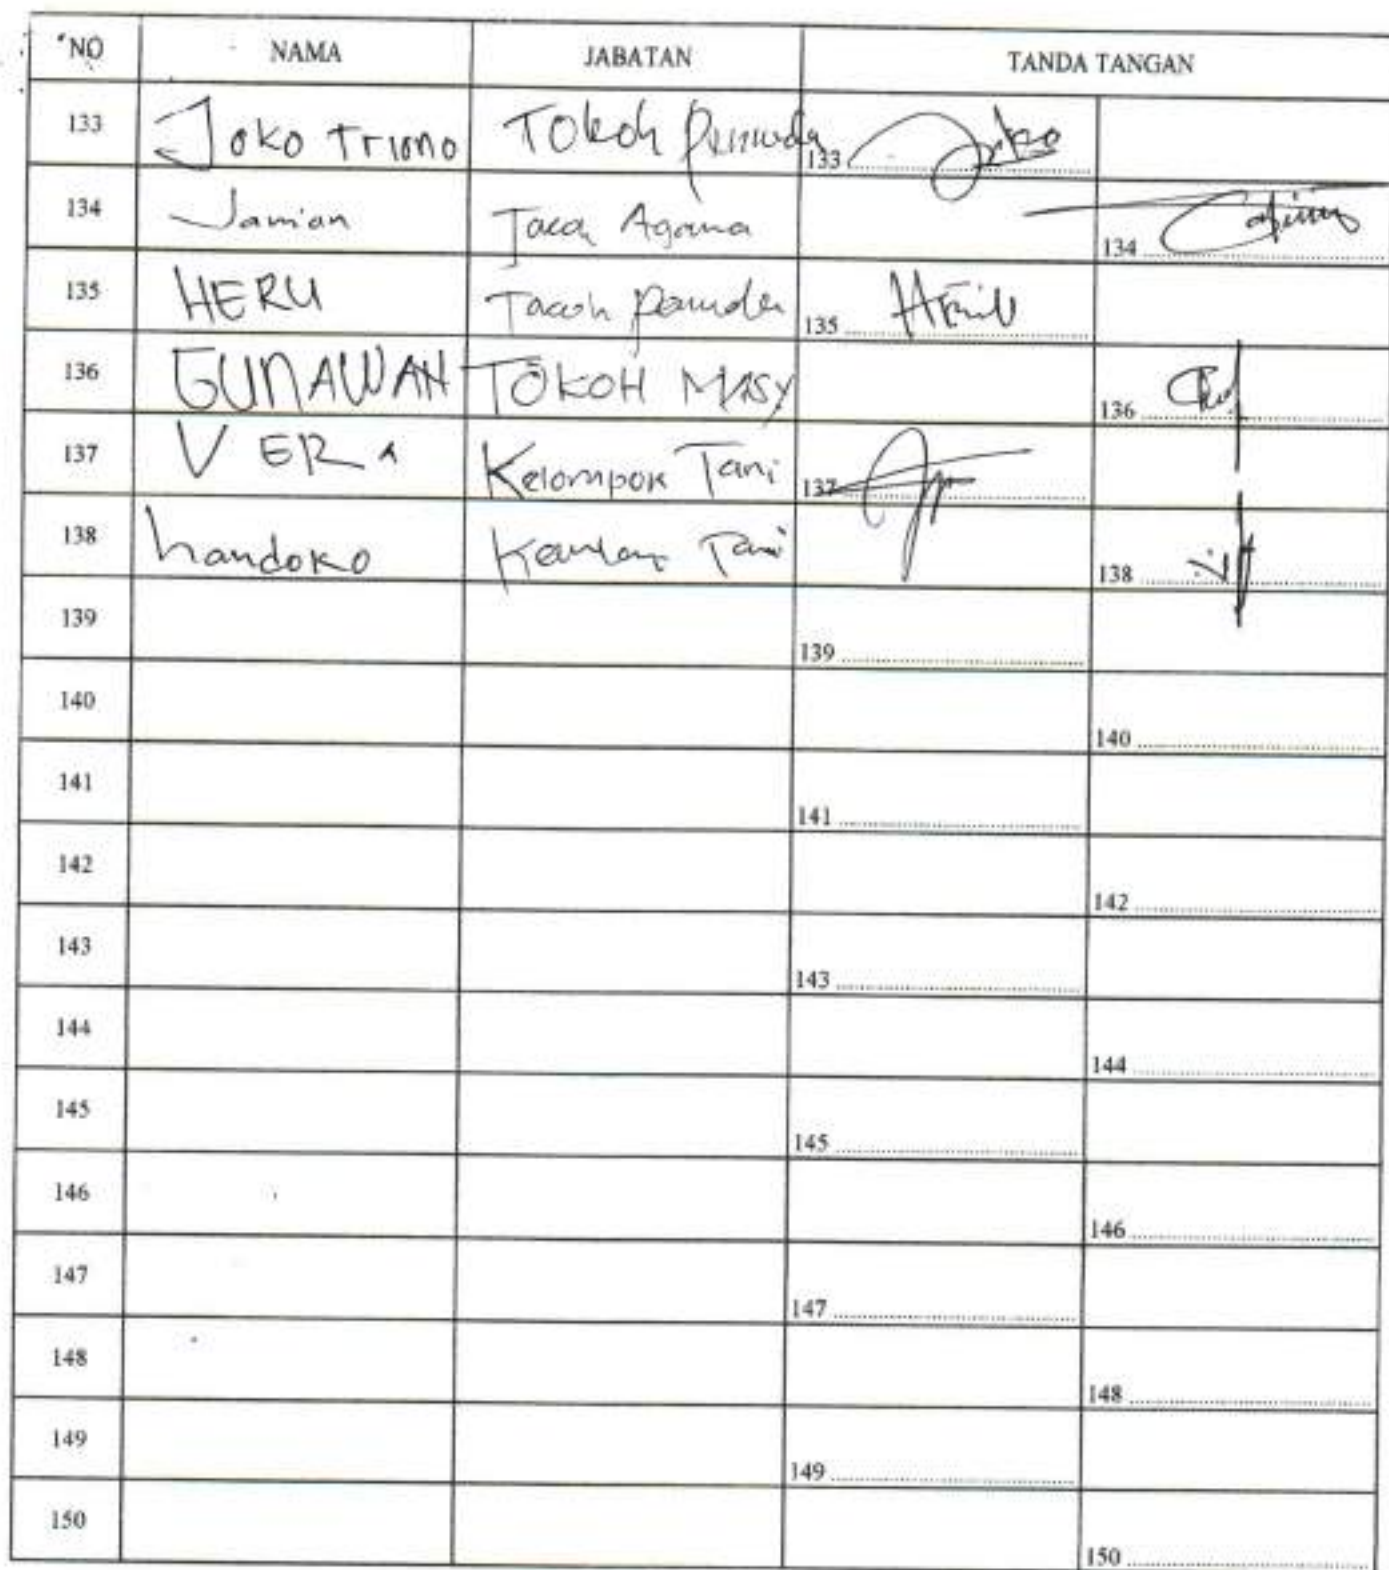 NO NAMA JABATAN TANDA TANGAN
133 Joko Triono Tokoh Pemuda 133
134 Jamian Agama 134
135 HERU 135
136 GUNAWAN TOKOH MASY 136
137 VERA Kelompok Tani 137
138 handoko Tani 138
139 139
140 140
141 141
142 142
143 143
144 144
145 145
146 146
147 147
148 148
149 149
150 150